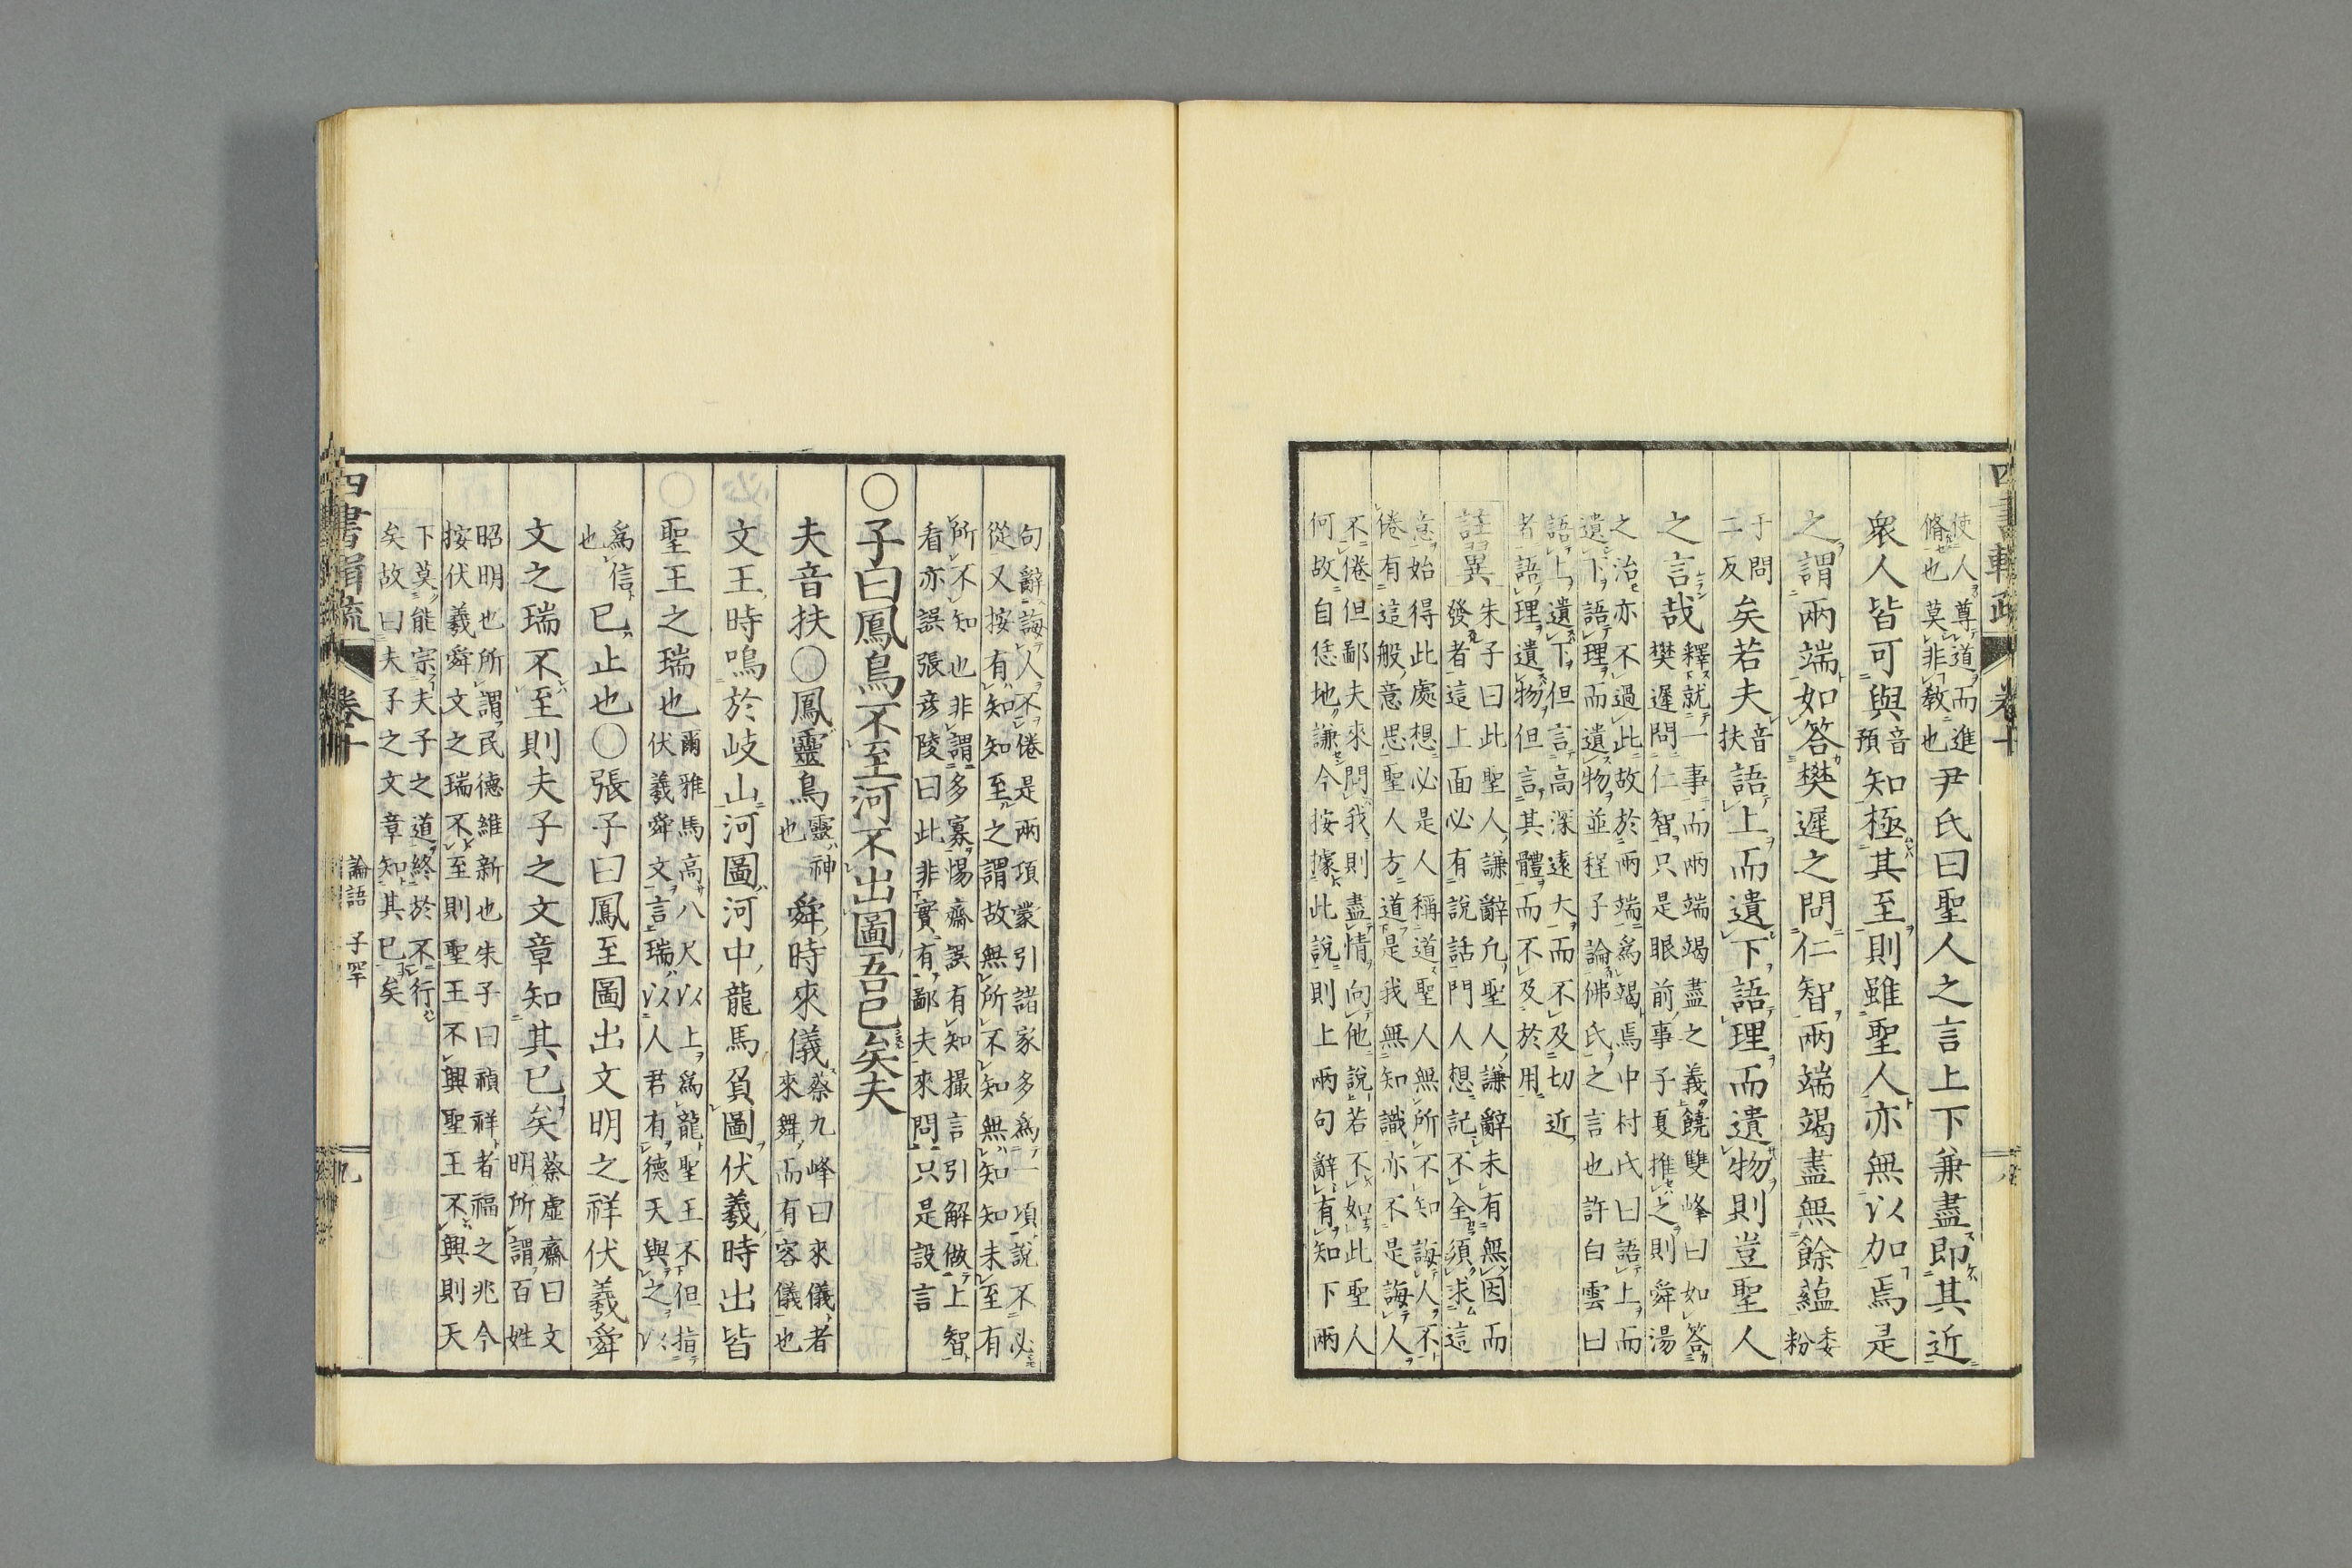 四書輯疏 卷十
使人尊道而進
脩也莫非教也
尹氏曰聖人之言上下兼盡即其近
衆人皆可與音預知極其至則雖聖人亦無以加焉是
之謂兩端如答樊遲之問仁智兩端竭盡無餘蘊委粉
于問二反矣若夫音扶語上而遺下語理而遺物則豈聖人
之言哉
釋就一事而兩端竭盡之義饒雙峰曰如答
樊遲問仁智只是眼前事子夏推之則舜湯
之治亦不過此故於兩端爲竭焉中村氏曰語上而
遺下語理而遺物並程子論佛氏之言也許白雲曰
語上遺下但言高深遠大而不及切近
者語理遺物但言其體而不及於用
註翼
朱子曰此聖人謙辭凡聖人謙辭未有無因而
發者這上面必有說話門人想記不全須求這
意始得此處想必是人稱道聖人無所不知誨人不
倦有這般意思聖人方道是我無知識亦不是誨人
不倦但鄙夫來問我則盡情向他說若不如此聖人
何故自恁地謙今按據此說則上兩句辭有知下兩
句辭誨人不倦是兩項蒙引諸家多爲一項說不必
從又按有知知至之謂故無所不知無知知未至有
所不知也非謂多寡惕齋誤有知撮言引解做上智
看亦誤張彦陵曰此非實有鄙夫來問只是設言
○子曰鳳鳥不至河不出圖吾已矣夫
夫音扶○鳳靈鳥靈神也舜時來儀
蔡九峰曰來儀者
來舞而有容儀也
文王時鳴於岐山河圖河中龍馬負圖伏羲時出皆
聖王之瑞也
爾雅馬高八尺以上爲龍聖王不但指
伏羲舜文言瑞以人君有德天與之以
爲信也已止也○張子曰鳳至圖出文明之祥伏羲舜
文之瑞不至則夫子之文章知其已矣
蔡虛齋曰文
明所謂百姓
昭明也所謂民德維新也朱子曰禎祥者福之兆今
按伏羲舜文之瑞不至則聖王不興聖王不興則天
下莫能宗夫子之道終於不行
矣故曰夫子之文章知其已矣
四書輯疏 卷十 論語 子罕 九